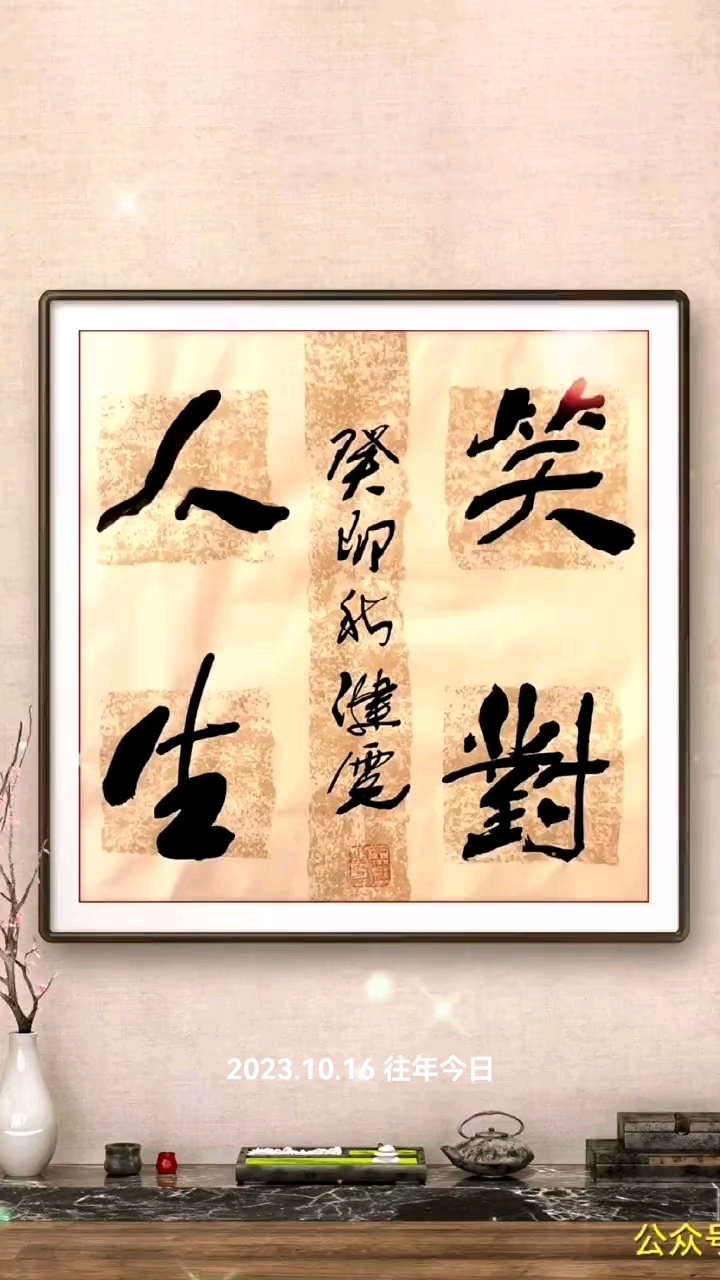 笑對
人生
癸卯秋建霓
2023.10.16 往年今日
公众号